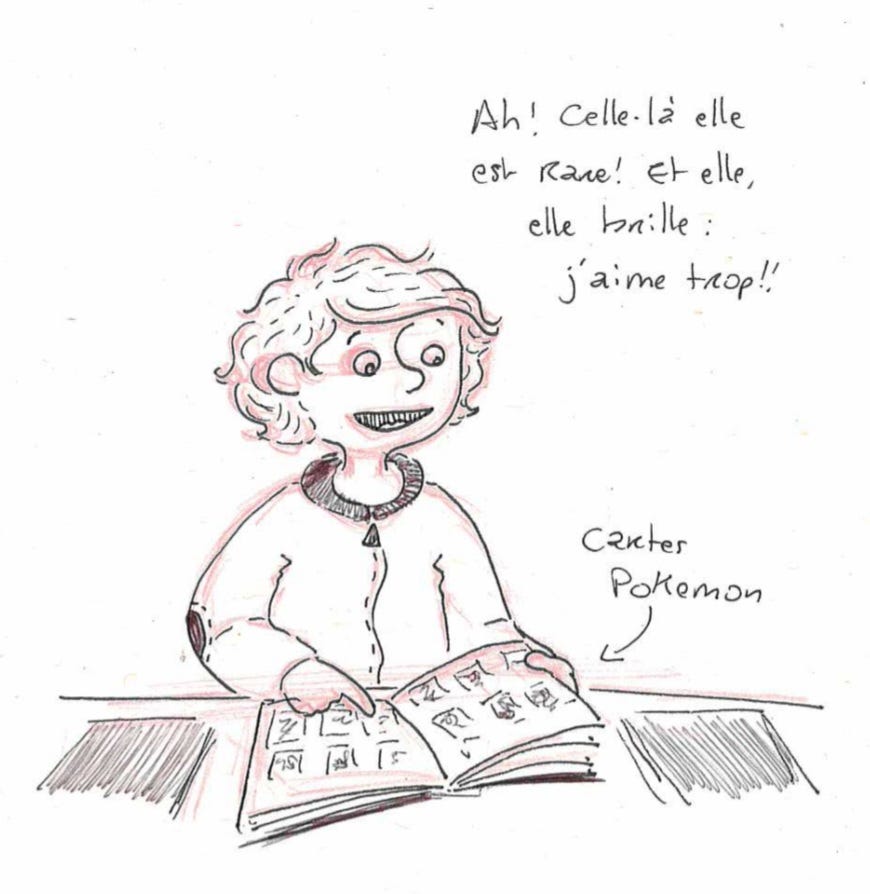 Ah! Celle-là elle
est rare! Et elle,
elle brille :
j'aime trop!!
Cartes
Pokemon